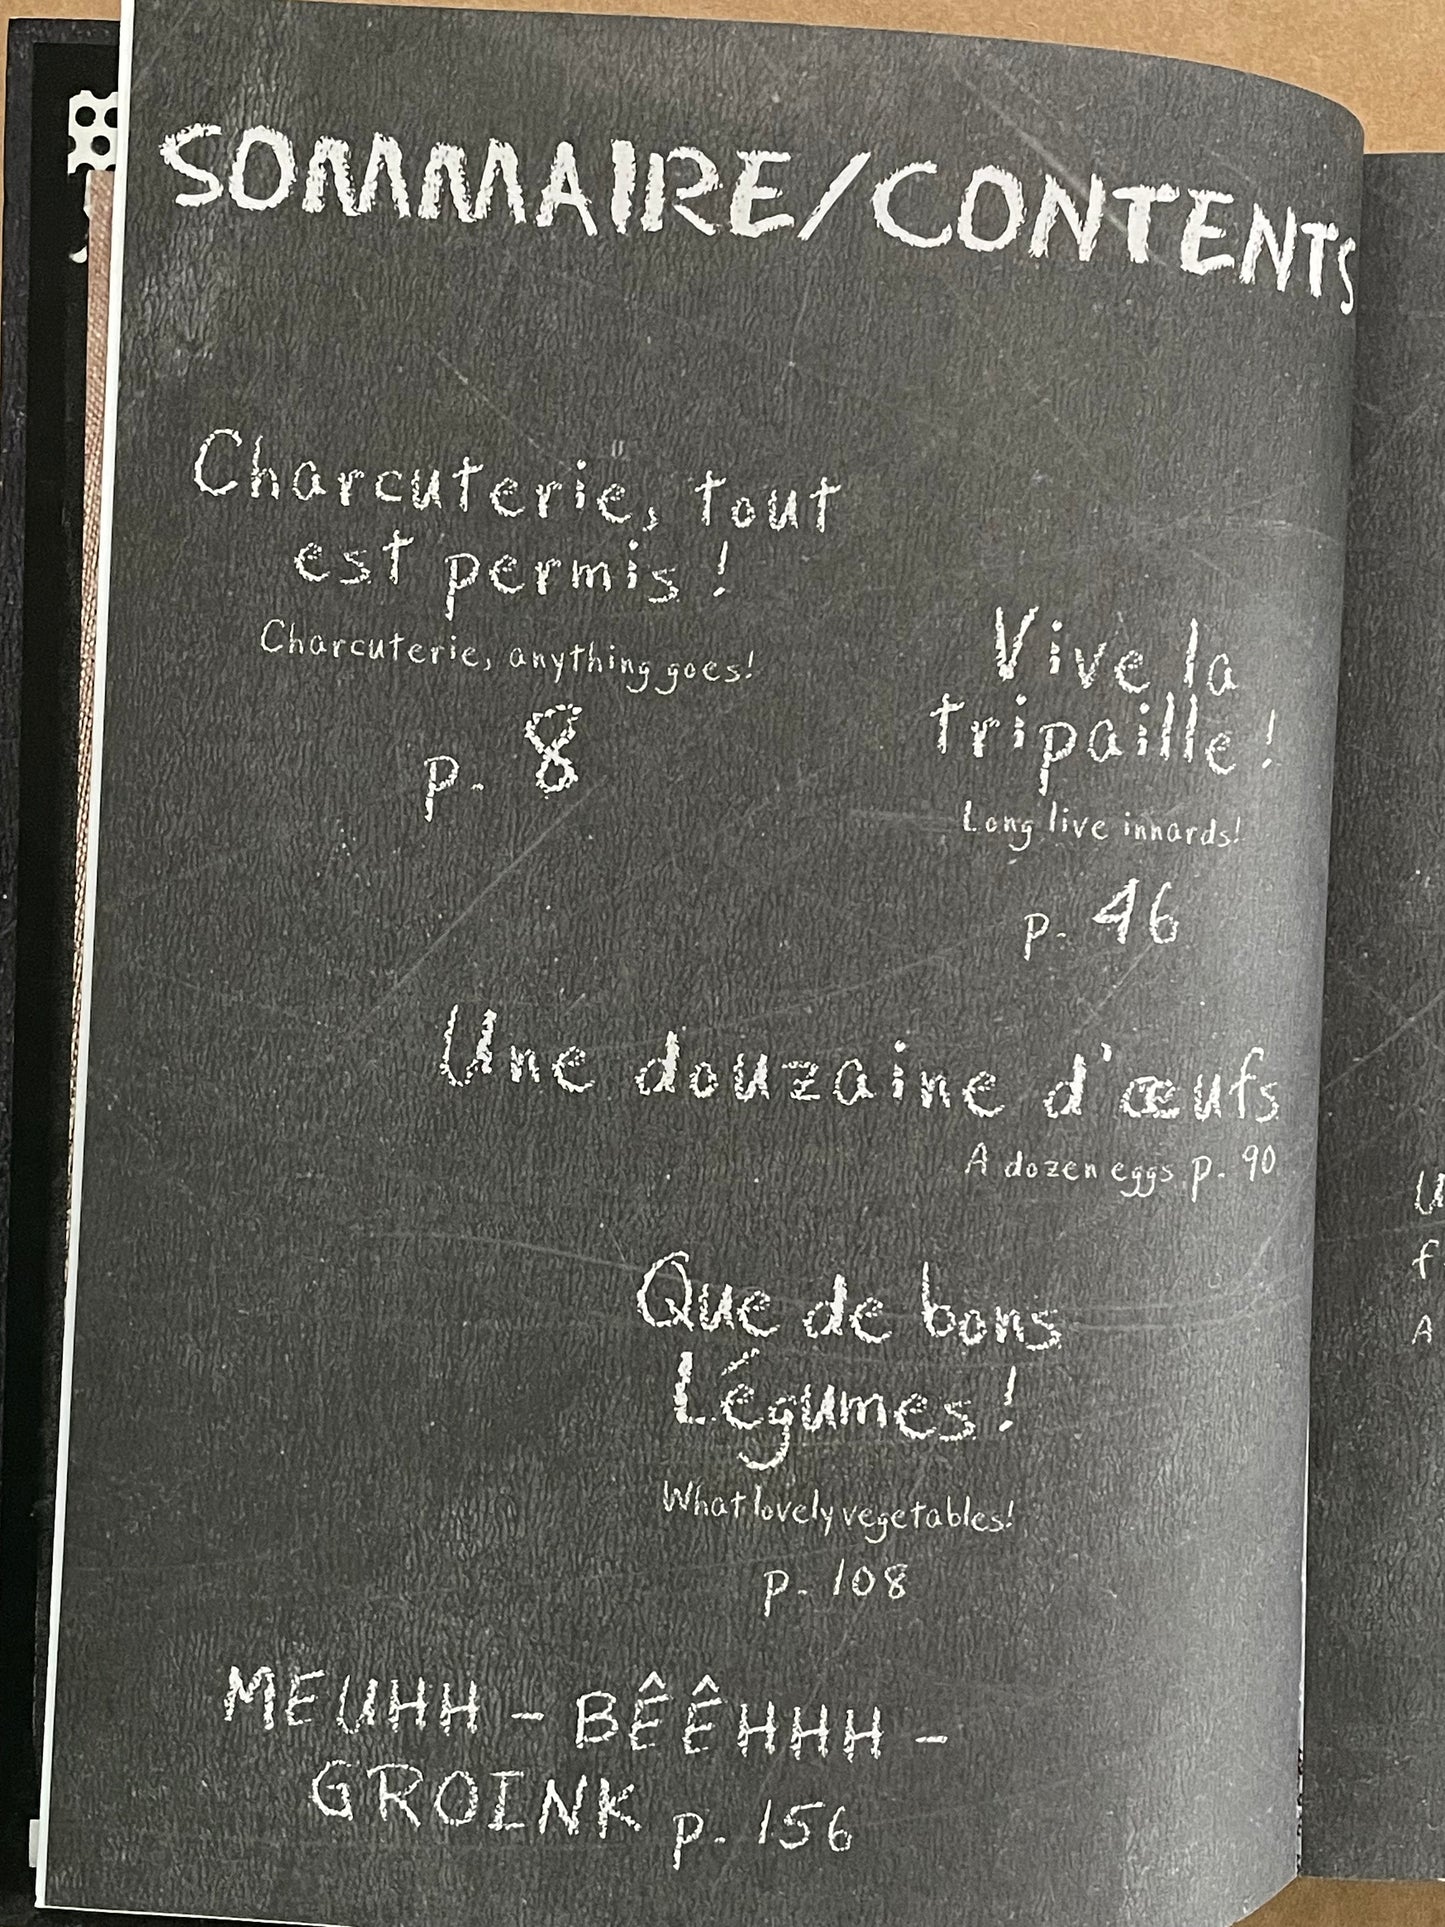 SOMMAIRE/CONTENTS
Charcuterie, tout
est permis !
Charcuterie, anything goes!
p. 8
Vive la
tripaille !
Long live innards!
p. 46
Une douzaine d'œufs
A dozen eggs p. 90
Que de bons
Légumes !
What lovely vegetables!
p. 108
MEUHH - BÊÊHHH -
GROINK p. 156